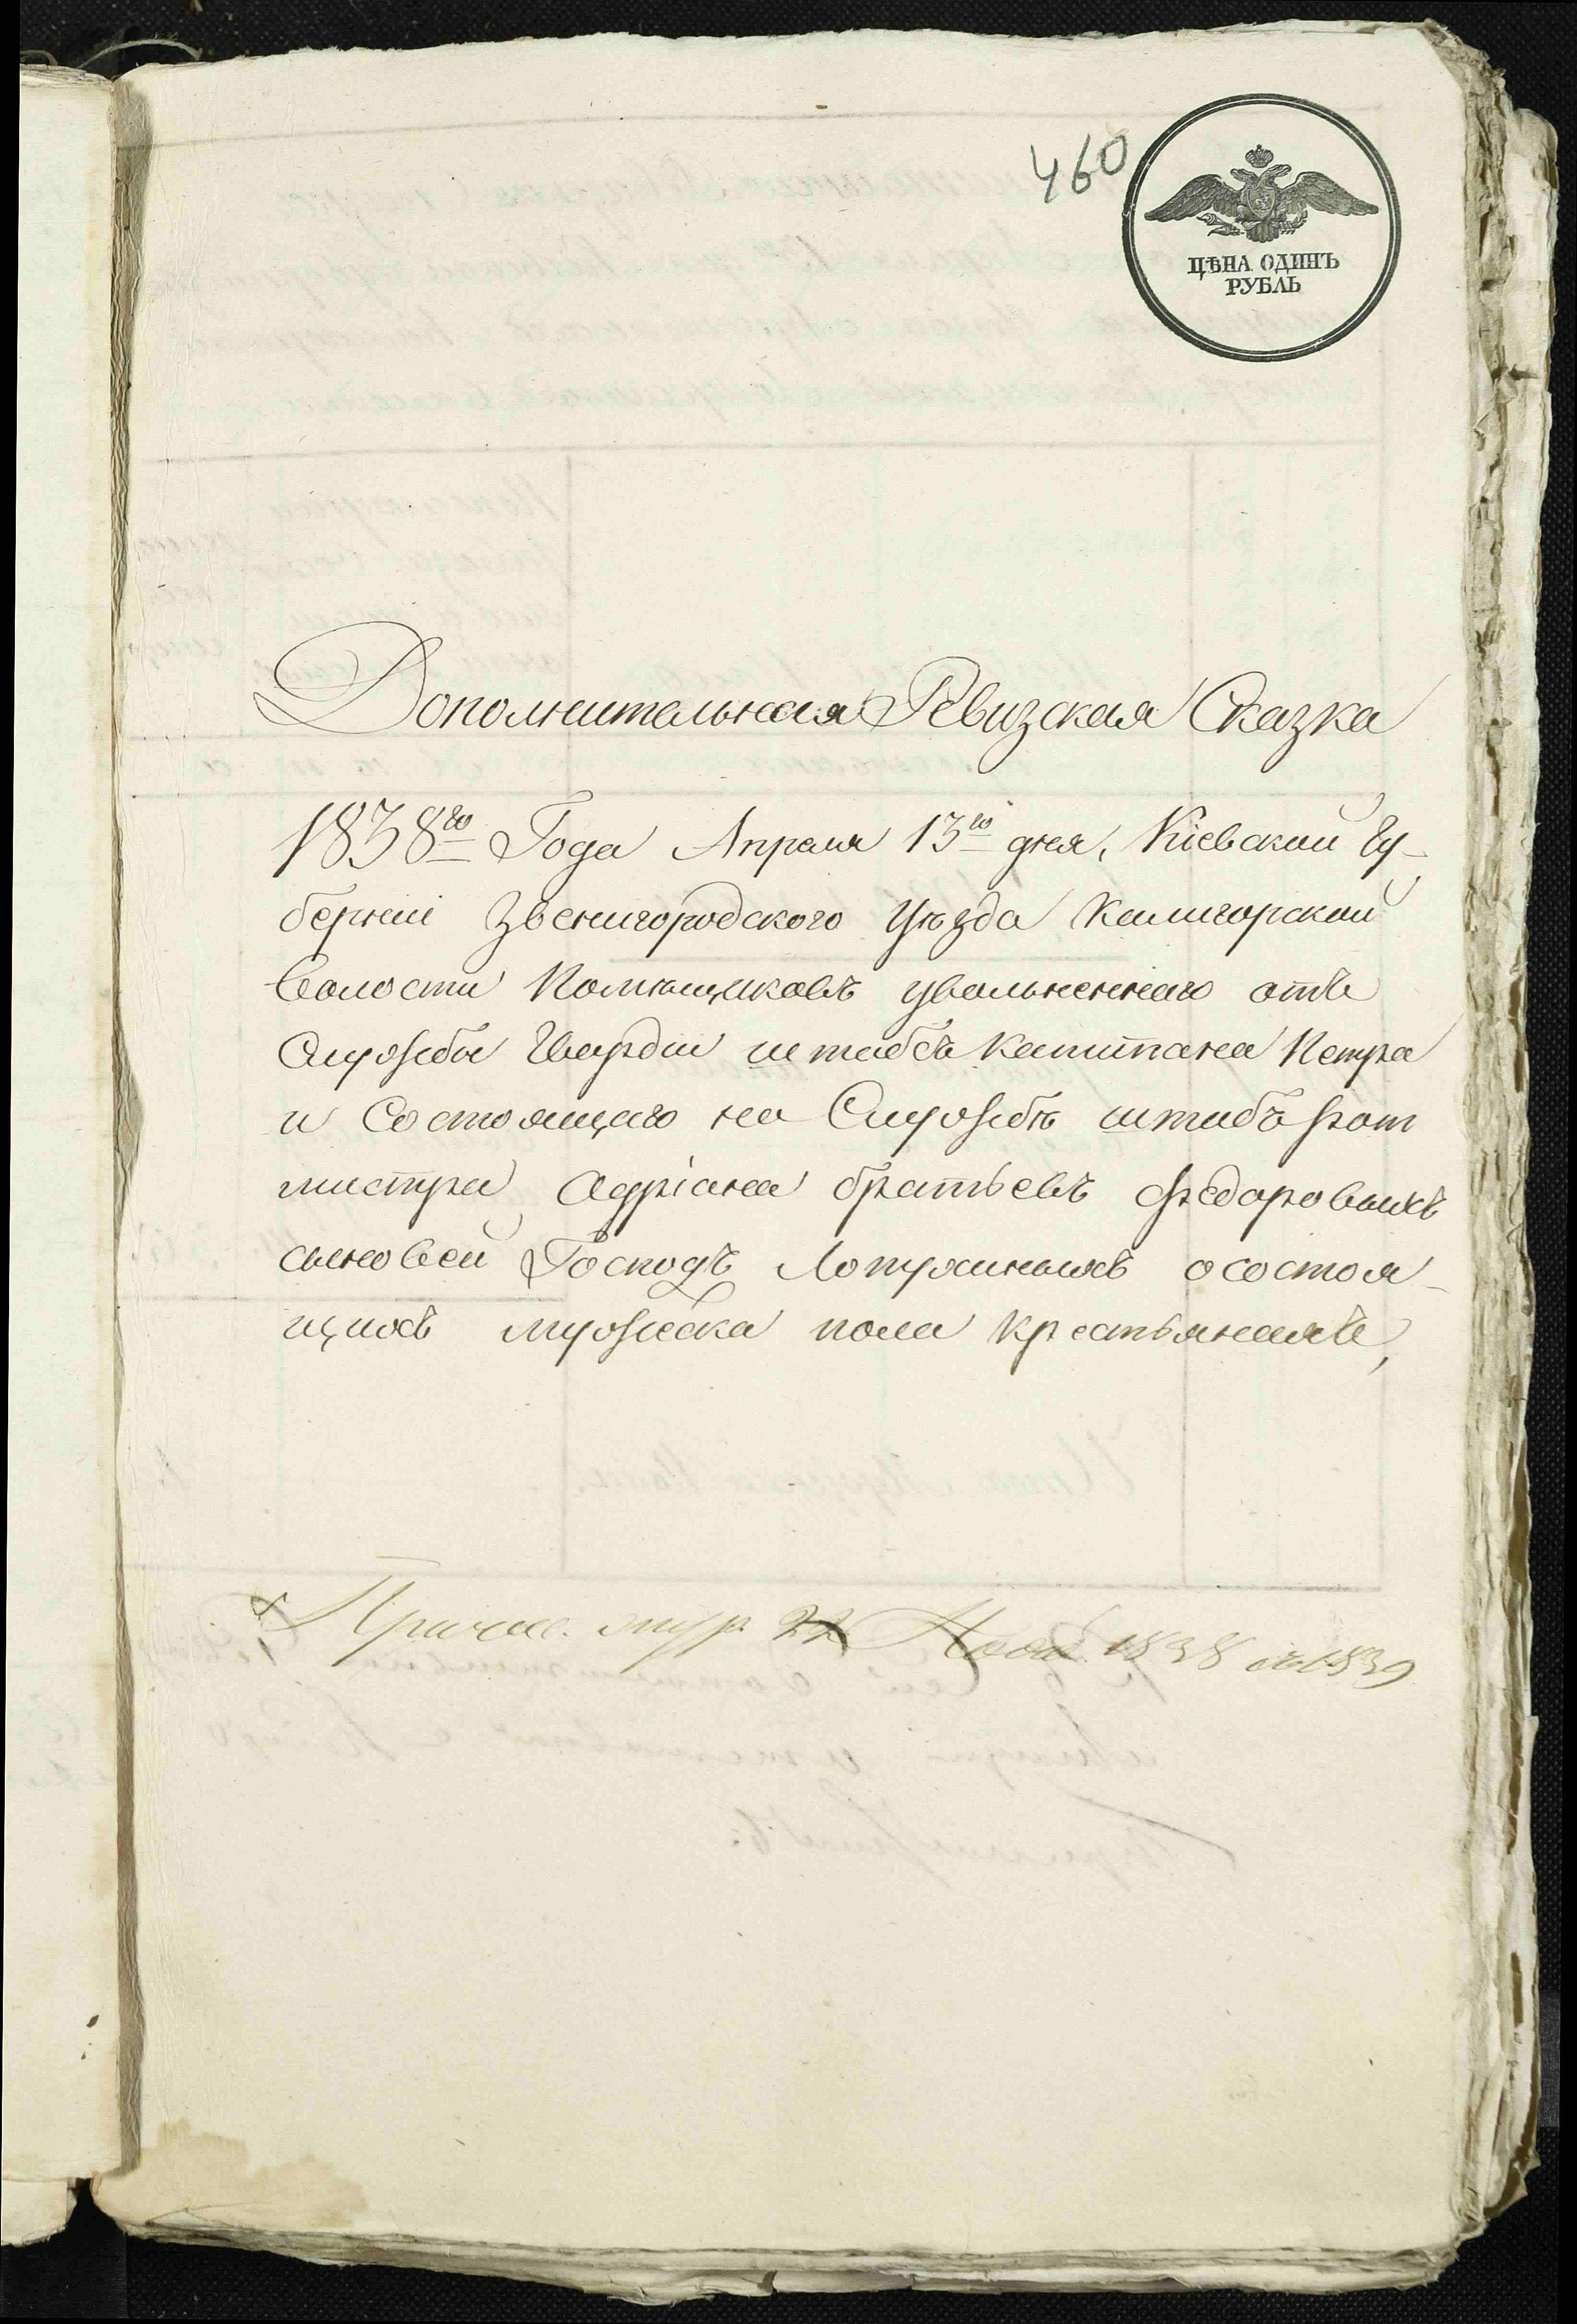 460
ЦѢНА ОДИНЪ
РУБЛЬ
Дополнительная Ревизская Сказка
1838го Года Апреля 13го дня, Кіевской Гу-
берніи Звенигородского Уѣзда Калигорской
Волости Помѣщиковъ уволъненнаго отъ
Службы Гвардіи штабсъ капитана Петра
и Состоящаго на Службѣ штабъ рот
мистра Адріана братьевъ Федоровыхъ
сыновей Господъ Лопухиныхъ о состоя-
щихъ мужеска пола крестьянахъ,
22 1838 1839